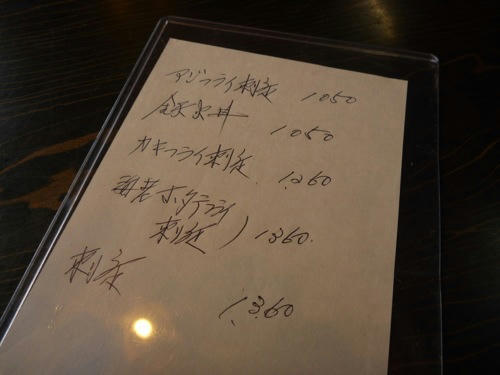 アジフライ刺定 1050
鉄火丼 1050
カキフライ刺定 1,260
海老ホタテフライ
刺定) 1360.
刺定
1,360